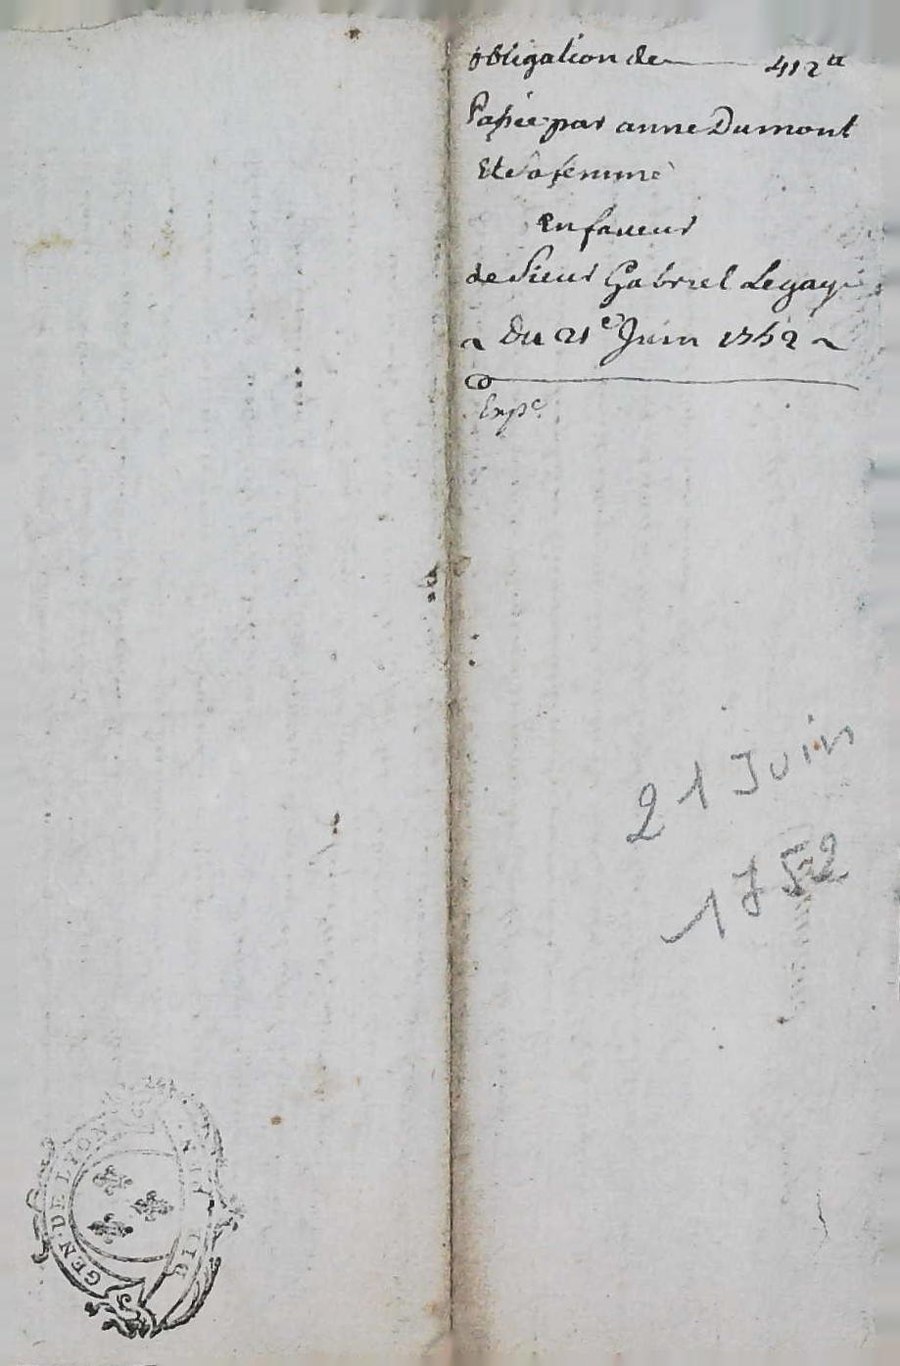 obligation de 412lt
Passée par anne Dumont
Et Sa femme
En faveur
de Sieur Gabriel Legay
Du 21e Juin 1752
Expe
21 Juin
1752
GEN. DE LYON